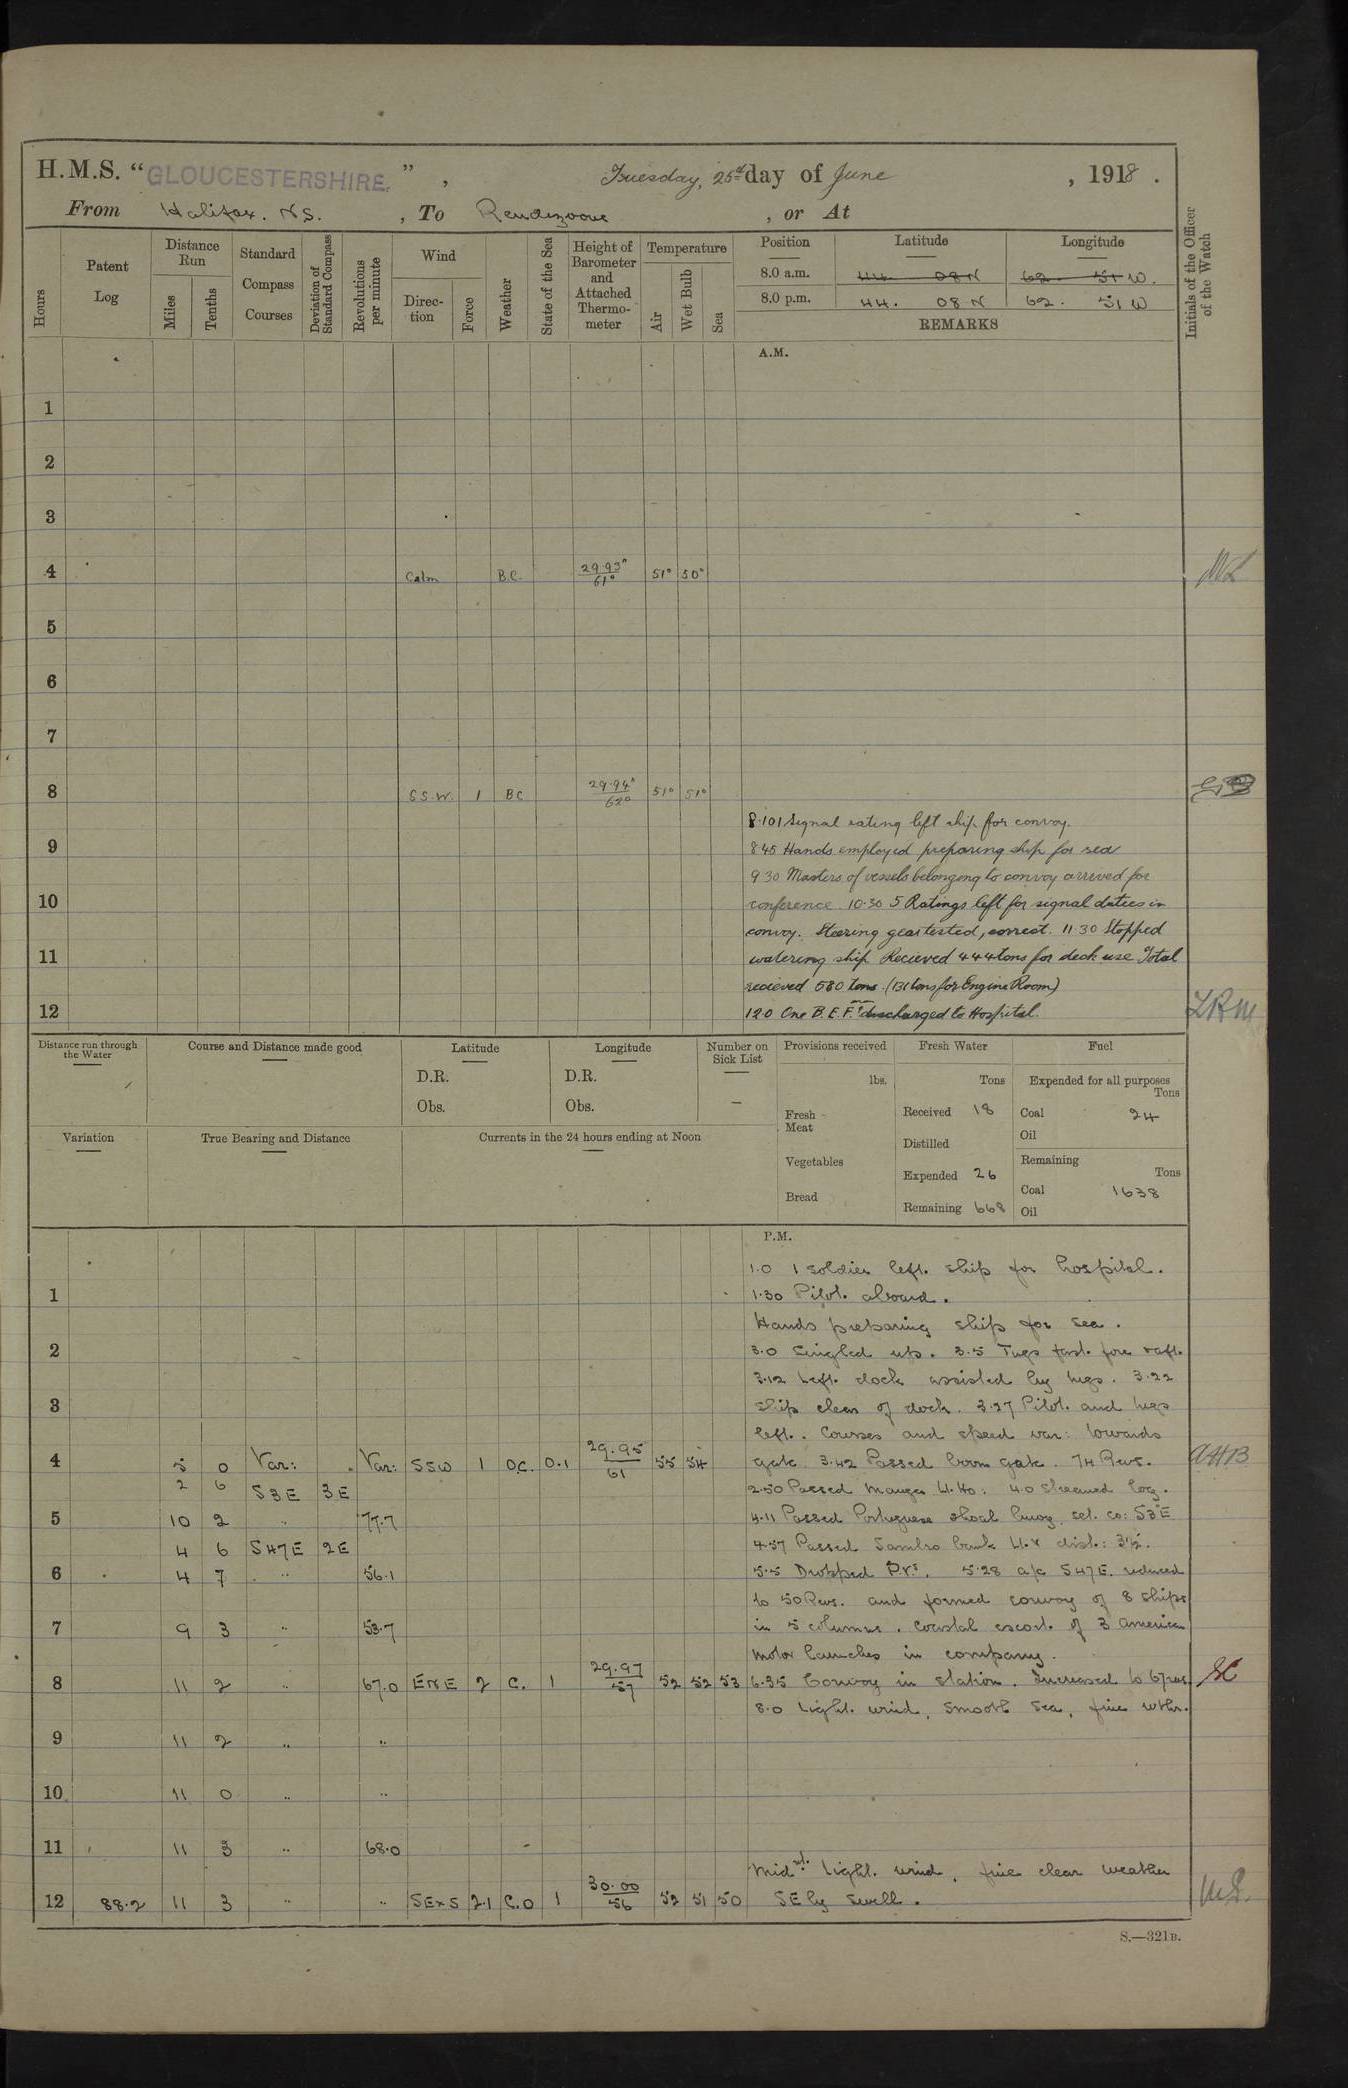 H.M.S. “GLOUCESTERSHIRE.” , Tuesday, 25th day of June , 1918 .
From Halifax. N.S. , To Rendezvous , or At
Hours
Patent Log
Distance Run
Miles
Tenths
Standard Compass Courses
Deviation of Standard Compass
Revolutions per minute
Wind
Direc-tion
Force
Weather
State of the Sea
Height of Barometer and Attached Thermo-meter
Temperature
Air
Wet Bulb
Sea
Position Latitude Longitude
8.0 a.m. 44. 08 N 62. 51 W.
8.0 p.m. 44. 08 N 62. 51 W
REMARKS
Initials of the Officer of the Watch
A.M.
1
2
3
4 Calm B.C. 29.93" 61° 51° 50°
5
6
7
8 S.S.W. 1 BC 29.94" 62° 51° 51°
8.10 1 Signal rating left ship for convoy.
9
8.45 Hands employed preparing ship for sea
9.30 Masters of vessels belonging to convoy arrived for
10
conference. 10.30 5 Ratings left for signal duties in
convoy. Steering gear tested, correct. 11.30 Stopped
11
watering ship Recieved 444 tons for deck use Total
recieved 580 tons. (131 tons for Engine Room)
12 12.0 One B.E.F. discharged to Hospital. LRM
Distance run through the Water
Course and Distance made good
Latitude
D.R.
Obs.
Longitude
D.R.
Obs.
Number on Sick List
—
Provisions received
lbs.
Fresh Meat
Vegetables
Bread
Fresh Water
Tons
Received 18
Distilled
Expended 26
Remaining 668
Fuel
Expended for all purposes
Tons
Coal 24
Oil
Remaining
Tons
Coal 1638
Oil
Variation
True Bearing and Distance
Currents in the 24 hours ending at Noon
P.M.
1.0 1 soldier left. ship for hospital.
1
1.30 Pilot. aboard.
Hands preparing ship for sea.
2
3.0 Singled up. 3.5 Tugs fast. fore & aft.
3.12 Left. dock assisted by tugs. 3.22
3
Ship clear of dock. 3.27 Pilot. and tugs
left. Courses and speed var: towards
4 5 0 Var: Var: SSW 1 O.C. 0.1 29.95 61 55 54 gate. 3.42 Passed boom gate. 74 Revs. AHB
2 6 S3E 3E 2.50 Passed Mauger Lt. Ho: 4.0 Streamed log.
5 10 2 " 77.7 4.11 Passed Portuguese shoal buoy. set. co: S3°E
4 6 S47E 2E 4.57 Passed Sambro bank Lt. V dist: 3½'.
6 4 7 " 56.1 5.5 Dropped P.Vs. 5.28 a/c S47E. reduced
to 50 Revs. and formed convoy of 8 ships
7 9 3 " 53.7 in 5 columns. Coastal escort. of 3 American
motor launches in company.
8 11 2 " 67.0 ENE 2 C. 1 29.97 57 52 52 53 6.35 Convoy in station. Increased to 67 revs.
8.0 Light. wind, smooth sea, fine wthr.
9 11 2 " "
10 11 0 " "
11 11 3 " 68.0
Midnt. Light. wind, fine clear weather
12 88.2 11 3 " " SExS 2.1 C.O 1 30.00 56 52 51 50 SEly Swell.
S.—321B.